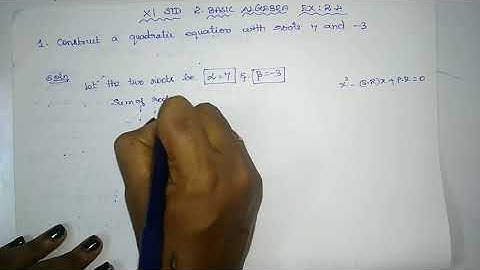 XI STD 2. BASIC ALGEBRA EX: 2.4
1. Construct a quadratic equation with roots 7 and -3
Soln
Let the two roots be α=7 & β=-3
x² - (S.R)x + P.R = 0
Sum of